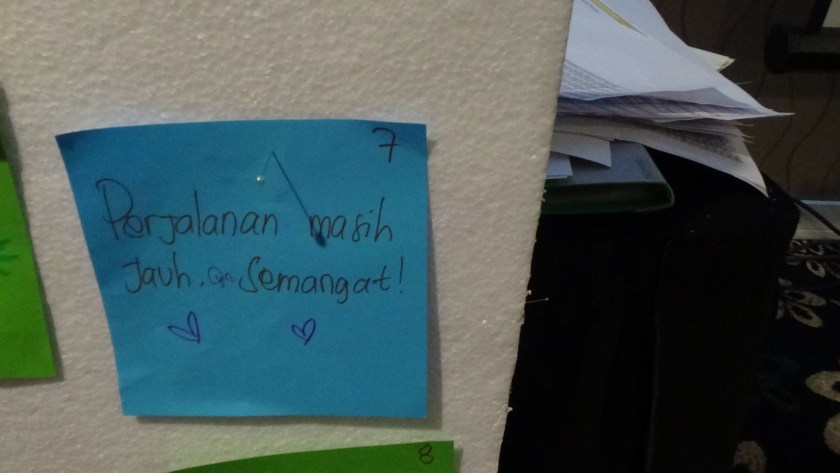 7
Perjalanan masih
Jauh. Semangat!
8